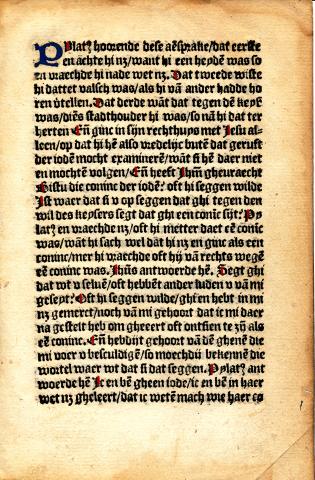 PPlat⁹ hoorende dese aēsprake/dat eerste
en achte hi nz/want hi een heydē was so
en vraechde hi nade wet nz. Dat tweede wiste
hi dattet valsch was/als hi vā ander hadde ho
ren vtellen. Dat derde wāt dat tegen dē keyš
was/diēs stadthouder hi was/so nā hi dat ter
herten Eñ ginc in sijn rechthuys met Jesu al-
leen/op dat hi hē also vredelijc butē dat geruft
der iodē mocht examinerē/wāt si hē daer niet
en mochtē volgen/ Eñ heeft Jhm̄ gheuraecht
Bistu die coninc der iodē? oft hi seggen wilde
Ist waer dat si v op seggen dat ghi tegen den
wil des keysers segt dat ghi een conic sijt? Py
lat⁹ en vraechde nz/oft hi metter daet eē conic
was/wāt hi sach wel dat hi nz en ginc als een
coninc/mer hi vraechde oft hij vā rechts wegē
eē coninc was. Jhūs antwoerde hē. Segt ghi
dat wt v seluē/oft hebbēt ander luden v vā mi
geseyt? Oft hi seggen wilde/ghi en hebt in mi
nz gemerct/noch vā mi gehoort dat ic mi daer
na gestelt heb om gheeert oft ontfien te zȳ als
eē coninc. Eñ hebdijt gehoort vā dē ghenē die
mi voer v besculdigē/so moechdij bekennē die
wortel waer wt dat si dat seggen. Pylat⁹ ant
woerde hē Ic en bē gheen iode/ic en bē in haer
wet nz gheleert/dat ic wetē mach wie haer co